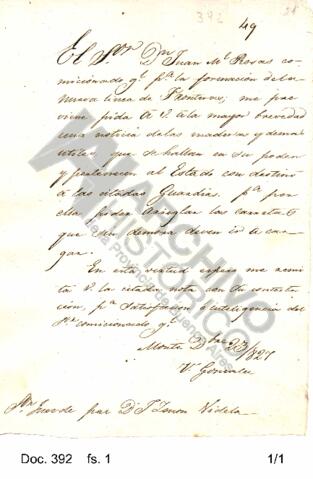 392
49
El Sor. Dn. Juan Ml. Rosas co-
micionado gl. pa. la formacion de la
nueva linea de Fronteras; me pre
viene pida a V. a la mayor brevedad
una noticia de las maderas y demas
utiles que se hallan en su poder
y pertenecen al Estado con destino
a las citadas Guardias. pa. por
ella poder arreglar las carretas
que sin demora deven ir a car-
gar.
En esta virtud espero me remita
V. la citada nota con su contesta-
cion, pa. satisfacion e inteligencia del
Sr. comicionado gl.
Monte Dbre. 23/827
V. Gonzalez
Dn. J. Zenon Videla
ARCHIVO
HISTORICO
de la Provincia de Buenos Aires
Doc. 392 fs. 1 1/1